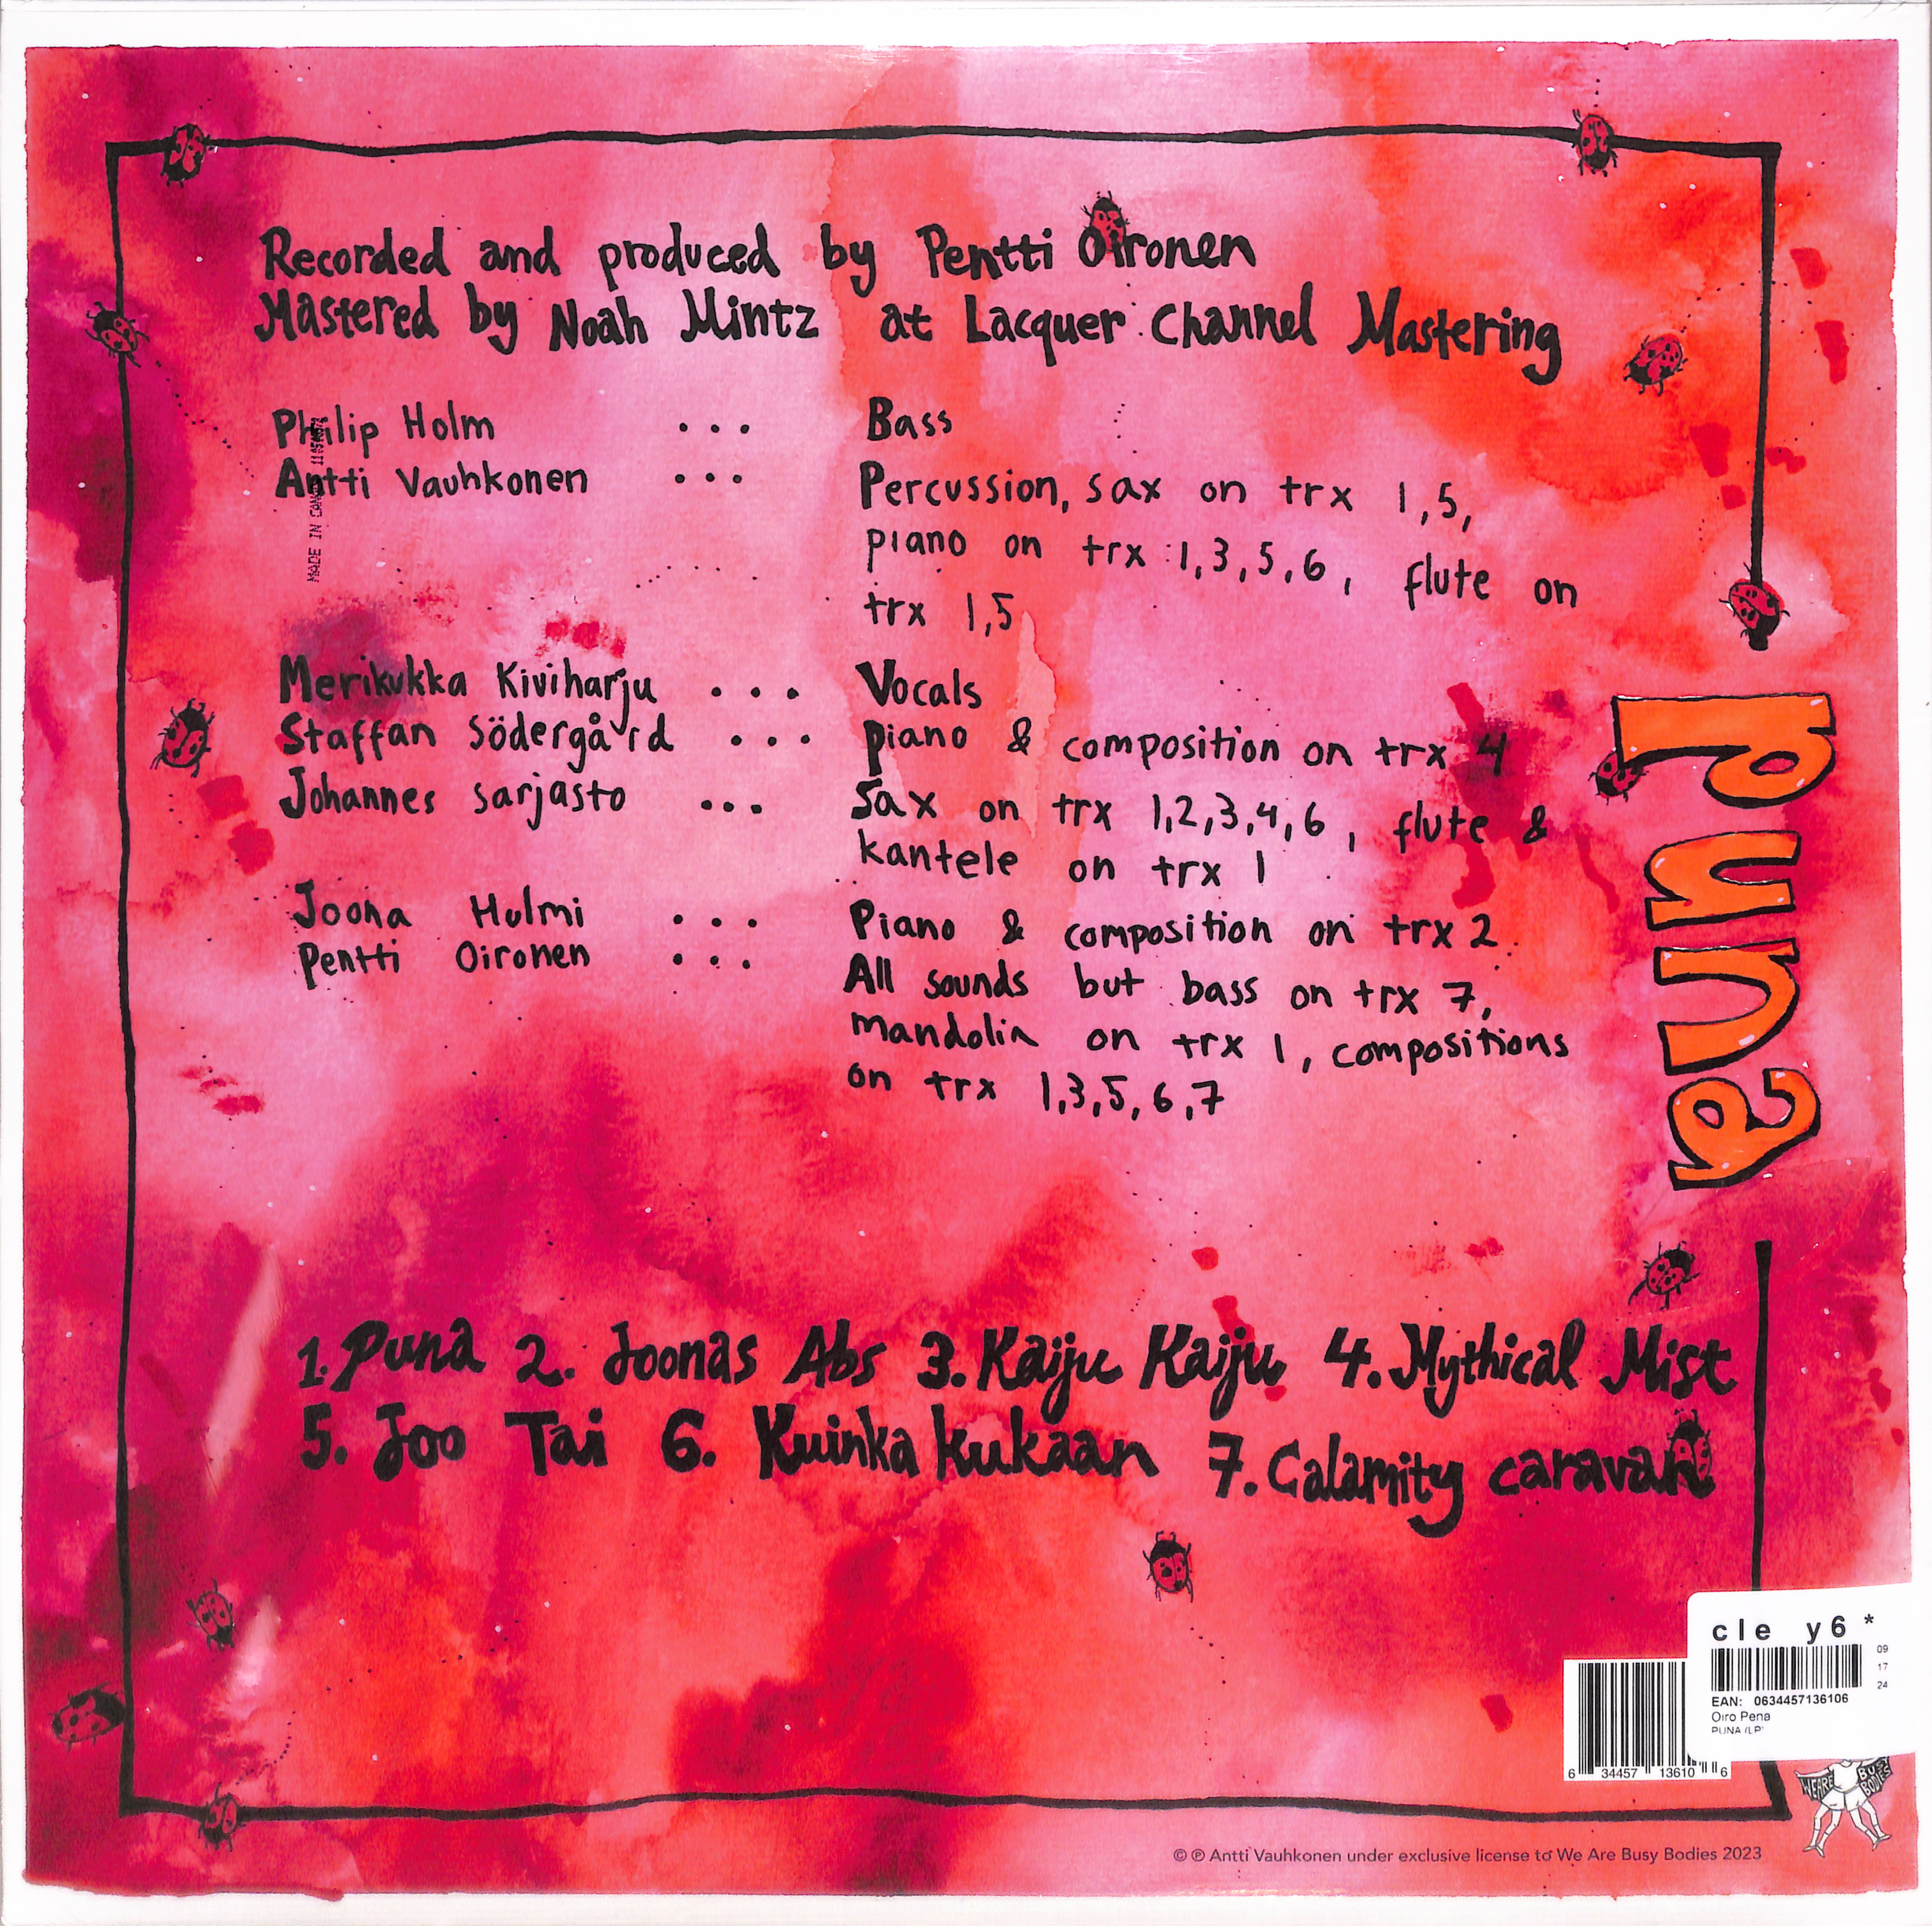 Recorded and produced by Pentti Oironen
Mastered by Noah Mintz at Lacquer Channel Mastering
Philip Holm ... Bass
Antti Vauhkonen ... Percussion, sax on trx 1,5,
piano on trx 1,3,5,6, flute on
trx 1,5
Merikukka Kiviharju ... Vocals
Staffan Södergård ... piano & composition on trx 4
Johannes Sarjasto ... Sax on trx 1,2,3,4,6, flute &
kantele on trx 1
Joona Hulmi ... Piano & composition on trx 2
Pentti Oironen ... All sounds but bass on trx 7,
mandolin on trx 1, compositions
on trx 1,3,5,6,7
MADE IN
Puna
1. Puna 2. Joonas Abs 3. Kaiju Kaiju 4. Mythical Mist
5. Joo Tai 6. Kuinka kukaan 7. Calamity caravan
cle y6 *
09
17
24
EAN: 0634457136106
Oiro Pena
PUNA (LP)
6 34457 13610 6
WE ARE BUSY BODIES
© ℗ Antti Vauhkonen under exclusive license to We Are Busy Bodies 2023